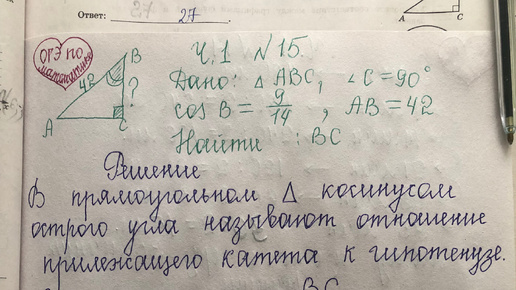 Ответ: 27
A C
ОГЭ по математике
Ч.1 №15.
B
42
?
A C
Дано: △ ABC, ∠C=90°
cos B = 9/14, AB=42
Найти: BC
Решение
В прямоугольном △ косинусом
острого угла называют отношение
прилежащего катета к гипотенузе.
BC